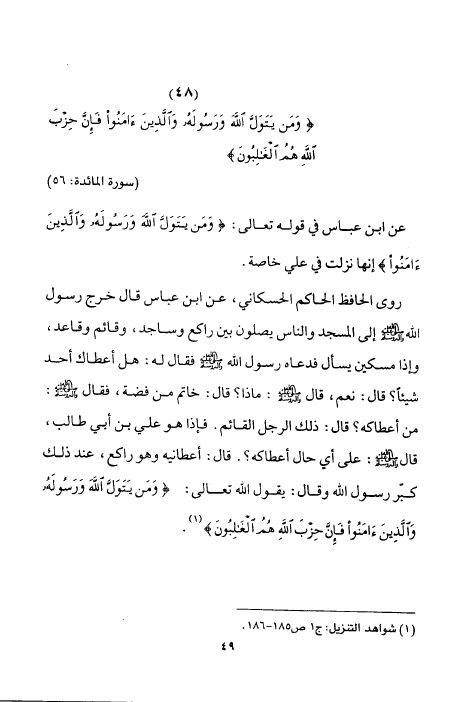 (٤٨)
﴿ وَمَن يَتَوَلَّ ٱللَّهَ وَرَسُولَهُۥ وَٱلَّذِينَ ءَامَنُوا۟ فَإِنَّ حِزْبَ
ٱللَّهِ هُمُ ٱلْغَـٰلِبُونَ ﴾
(سورة المائدة: ٥٦)
عن ابن عباس في قوله تعالى: ﴿ وَمَن يَتَوَلَّ ٱللَّهَ وَرَسُولَهُۥ وَٱلَّذِينَ
ءَامَنُوا۟ ﴾ إنها نزلت في علي خاصة.
روى الحافظ الحاكم الحسكاني، عن ابن عباس قال خرج رسول
الله ﷺ إلى المسجد والناس يصلون بين راكع وساجد، وقائم وقاعد،
وإذا مسكين يسأل فدعاه رسول الله ﷺ فقال له: هل أعطاك أحد
شيئاً؟ قال: نعم، قال ﷺ: ماذا؟ قال: خاتم من فضة، فقال ﷺ:
من أعطاكه؟ قال: ذلك الرجل القائم. فإذا هو علي بن أبي طالب،
قال ﷺ: على أي حال أعطاكه؟. قال: أعطانيه وهو راكع، عند ذلك
كبّر رسول الله وقال: يقول الله تعالى: ﴿ وَمَن يَتَوَلَّ ٱللَّهَ وَرَسُولَهُۥ
وَٱلَّذِينَ ءَامَنُوا۟ فَإِنَّ حِزْبَ ٱللَّهِ هُمُ ٱلْغَـٰلِبُونَ ﴾(١).
(١) شواهد التنزيل: ج١ ص١٨٥-١٨٦.
٤٩